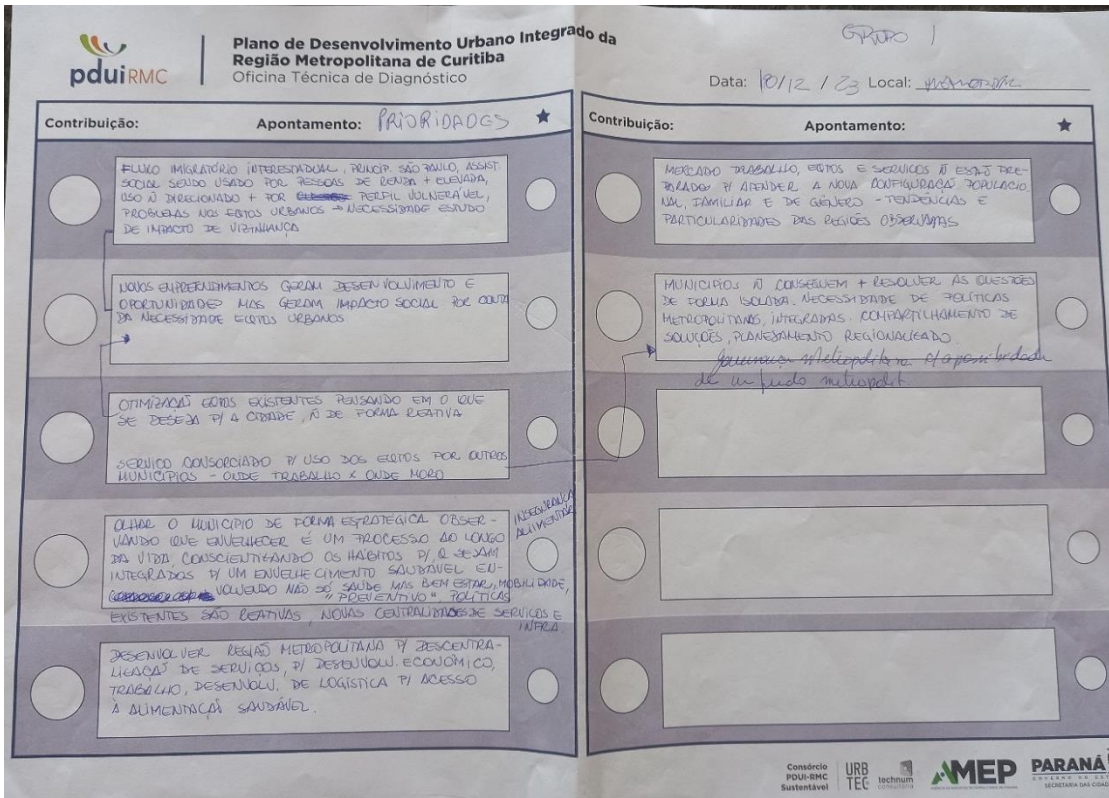 pduiRMC
Plano de Desenvolvimento Urbano Integrado da
Região Metropolitana de Curitiba
Oficina Técnica de Diagnóstico
GRUPO 1
Data: 18/12/23 Local:
Contribuição: Apontamento: PRIORIDADES
FLUXO IMIGRATÓRIO INTERESTADUAL, PRINCIP. SÃO PAULO, ASSIST.
SOCIAL SENDO USADO POR PESSOAS DE RENDA + ELEVADA,
USO Ñ DIRECIONADO + POR PERFIL VULNERÁVEL,
PROBLEMAS NOS EQTOS URBANOS → NECESSIDADE ESTUDO
DE IMPACTO DE VIZINHANÇA
NOVOS EMPREENDIMENTOS GERAM DESENVOLVIMENTO E
OPORTUNIDADES MAS GERAM IMPACTO SOCIAL POR CONTA
DA NECESSIDADE EQTOS URBANOS
OTIMIZAÇÃ EQTOS EXISTENTES PENSANDO EM O QUE
SE DESEJA P/ A CIDADE, Ñ DE FORMA REATIVA
SERVIÇO CONSORCIADO P/ USO DOS EQTOS POR OUTROS
MUNICÍPIOS - ONDE TRABALHO X ONDE MORO
OLHAR O MUNICÍPIO DE FORMA ESTRATÉGICA OBSER-
VANDO QUE ENVELHECER É UM PROCESSO AO LONGO
DA VIDA, CONSCIENTIZANDO OS HÁBITOS P/ Q SEJAM
INTEGRADOS P/ UM ENVELHECIMENTO SAUDÁVEL EN-
VOLVENDO NÃO SÓ SAÚDE MAS BEM ESTAR, MOBILIDADE,
"PREVENTIVO" POLÍTICAS
EXISTENTES SÃO REATIVAS, NOVAS CENTRALIDADES DE SERVIÇOS E
INFRA
INSEGURANÇA
ALIMENTAR
DESENVOLVER REGIÃ METROPOLITANA P/ DESCENTRA-
LIZAÇÃ DE SERVIÇOS, P/ DESENVOLV. ECONÔMICO,
TRABALHO, DESENVOLV. DE LOGÍSTICA P/ ACESSO
À ALIMENTAÇÃ SAUDÁVEL.
Contribuição: Apontamento:
MERCADO TRABALHO, EQTOS E SERVIÇOS Ñ ESTÃ PRE-
PARADOS P/ ATENDER A NOVA CONFIGURAÇÃ POPULACIO
NAL, FAMILIAR E DE GÊNERO - TENDÊNCIAS E
PARTICULARIDADES DAS REGIÕES OBSERVADAS
MUNICÍPIOS Ñ CONSEGUEM + RESOLVER AS QUESTÕES
DE FORMA ISOLADA. NECESSIDADE DE POLÍTICAS
METROPOLITANAS, INTEGRADAS. COMPARTILHAMENTO DE
SOLUÇÕES, PLANEJAMENTO REGIONALIZADO.
Governança Metropolitana p/ a possibilidade
de um fundo metropolit.
Consórcio
PDUI-RMC
Sustentável
URB
TEC
technum
consultoria
AMEP
PARANÁ
GOVERNO DO ESTADO
SECRETARIA DAS CIDADES